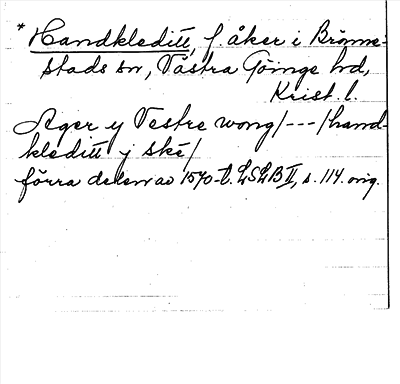 * Handkleditt, f. åker i Bröme-
stads sn, Västra Göinge hd,
Krist. l.
Ager y Vestre wong/---/hand-
kleditt j ske/
förra delen av 1570-t. LSLB II, s. 114. orig.